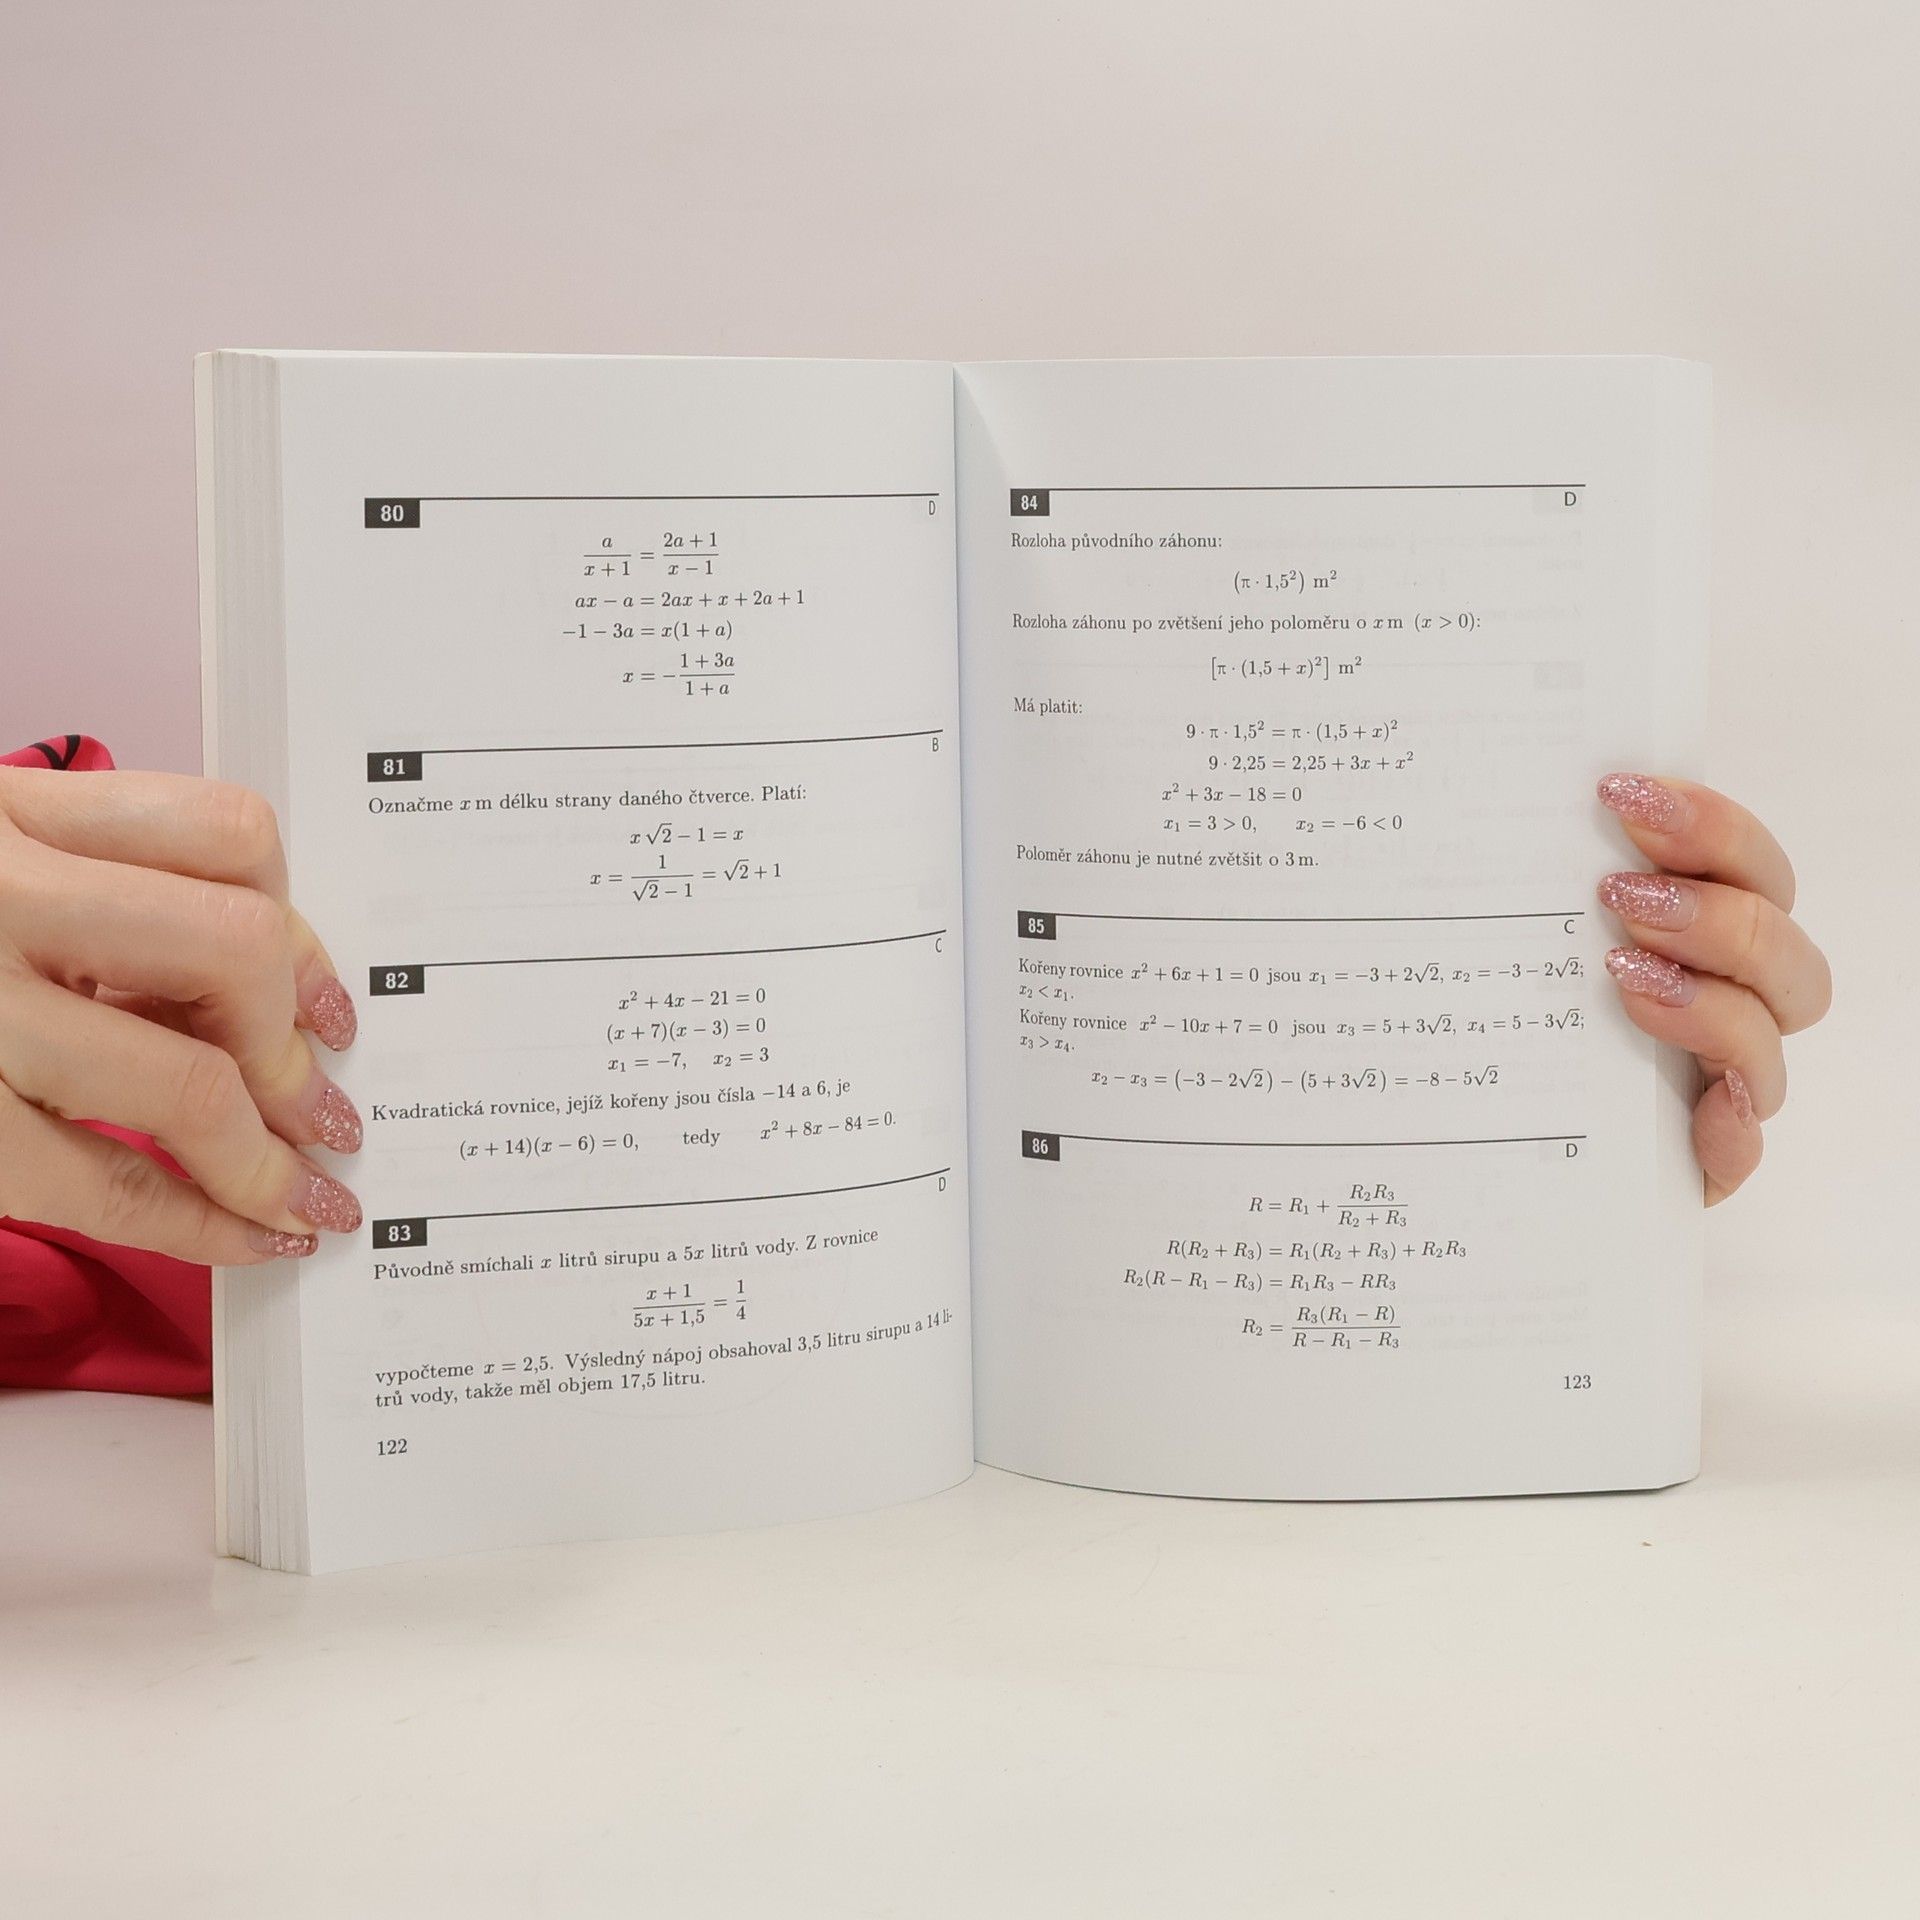 80 D
a/(x + 1) = (2a + 1)/(x − 1)
ax − a = 2ax + x + 2a + 1
−1 − 3a = x(1 + a)
x = −(1 + 3a)/(1 + a)
81 B
Označme x m délku strany daného čtverce. Platí:
x√2 − 1 = x
x = 1/(√2 − 1) = √2 + 1
82 C
x² + 4x − 21 = 0
(x + 7)(x − 3) = 0
x₁ = −7, x₂ = 3
Kvadratická rovnice, jejíž kořeny jsou čísla −14 a 6, je
(x + 14)(x − 6) = 0, tedy x² + 8x − 84 = 0.
83 D
Původně smíchali x litrů sirupu a 5x litrů vody. Z rovnice
(x + 1)/(5x + 1,5) = 1/4
vypočteme x = 2,5. Výsledný nápoj obsahoval 3,5 litru sirupu a 14 li-
trů vody, takže měl objem 17,5 litru.
122
84 D
Rozloha původního záhonu:
(π · 1,5²) m²
Rozloha záhonu po zvětšení jeho poloměru o x m (x > 0):
[π · (1,5 + x)²] m²
Má platit:
9 · π · 1,5² = π · (1,5 + x)²
9 · 2,25 = 2,25 + 3x + x²
x² + 3x − 18 = 0
x₁ = 3 > 0, x₂ = −6 < 0
Poloměr záhonu je nutné zvětšit o 3 m.
85 C
Kořeny rovnice x² + 6x + 1 = 0 jsou x₁ = −3 + 2√2, x₂ = −3 − 2√2;
x₂ < x₁.
Kořeny rovnice x² − 10x + 7 = 0 jsou x₃ = 5 + 3√2, x₄ = 5 − 3√2;
x₃ > x₄.
x₂ − x₃ = (−3 − 2√2) − (5 + 3√2) = −8 − 5√2
86 D
R = R₁ + R₂R₃/(R₂ + R₃)
R(R₂ + R₃) = R₁(R₂ + R₃) + R₂R₃
R₂(R − R₁ − R₃) = R₁R₃ − RR₃
R₂ = R₃(R₁ − R)/(R − R₁ − R₃)
123